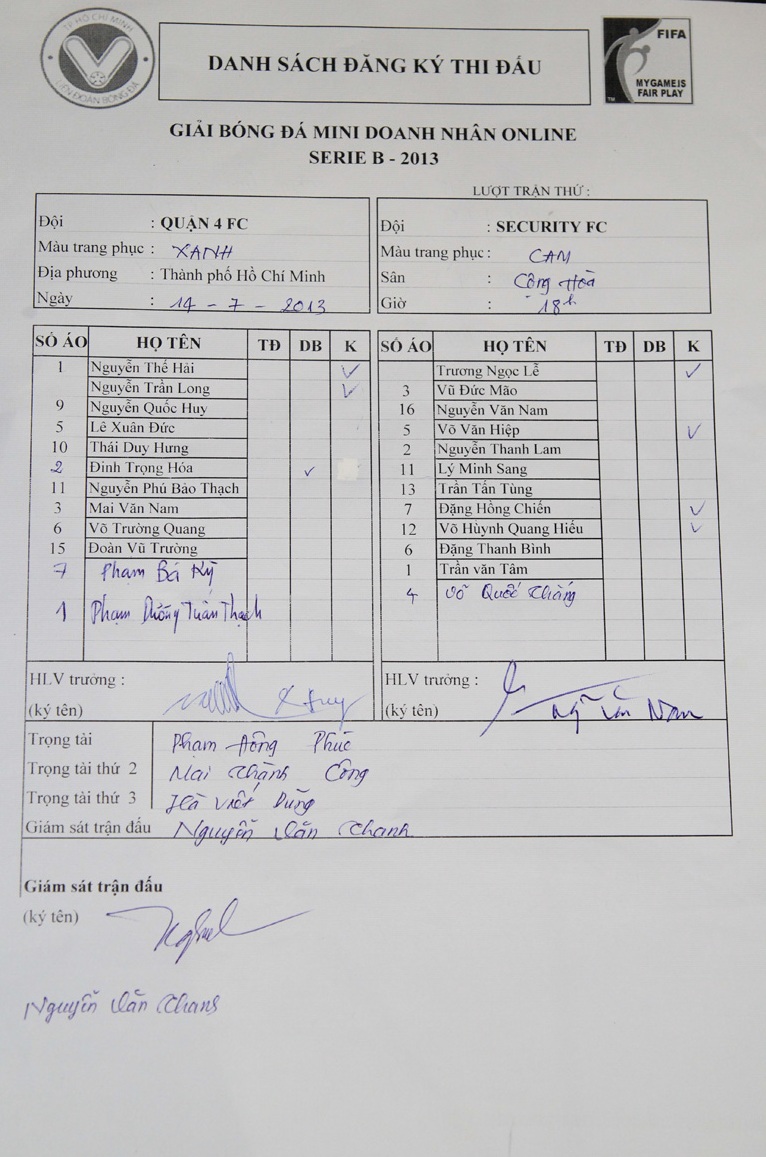 TP HỒ CHÍ MINH
LIÊN ĐOÀN BÓNG ĐÁ
DANH SÁCH ĐĂNG KÝ THI ĐẤU
FIFA
MY GAME IS
FAIR PLAY
GIẢI BÓNG ĐÁ MINI DOANH NHÂN ONLINE
SERIE B - 2013
LƯỢT TRẬN THỨ :
Đội : QUẬN 4 FC
Màu trang phục : XANH
Địa phương : Thành phố Hồ Chí Minh
Ngày : 14 - 7 - 2013
Đội : SECURITY FC
Màu trang phục : CAM
Sân : Cộng Hòa
Giờ : 18h
SỐ ÁO HỌ TÊN TĐ DB K
1 Nguyễn Thế Hải ✓
Nguyễn Trần Long ✓
9 Nguyễn Quốc Huy
5 Lê Xuân Đức
10 Thái Duy Hưng
2 Đinh Trọng Hóa ✓
11 Nguyễn Phú Bảo Thạch
3 Mai Văn Nam
6 Võ Trường Quang
15 Đoàn Vũ Trường
7 Phạm Bá Kỳ
1 Phạm Dương Tuấn Thạch
SỐ ÁO HỌ TÊN TĐ DB K
Trương Ngọc Lễ ✓
3 Vũ Đức Mão
16 Nguyễn Văn Nam
5 Võ Văn Hiệp ✓
2 Nguyễn Thanh Lam
11 Lý Minh Sang
13 Trần Tấn Tùng
7 Đặng Hồng Chiến ✓
12 Võ Hùynh Quang Hiếu ✓
6 Đặng Thanh Bình
1 Trần văn Tâm
4 Võ Quốc Thắng
HLV trưởng :
(ký tên) Huy
HLV trưởng :
(ký tên) Ng Văn Nam
Trọng tài Phạm Hồng Phúc
Trọng tài thứ 2 Mai Thành Công
Trọng tài thứ 3 Hà Viết Dũng
Giám sát trận đấu Nguyễn Văn Thanh
Giám sát trận đấu
(ký tên)
Nguyễn Văn Thanh